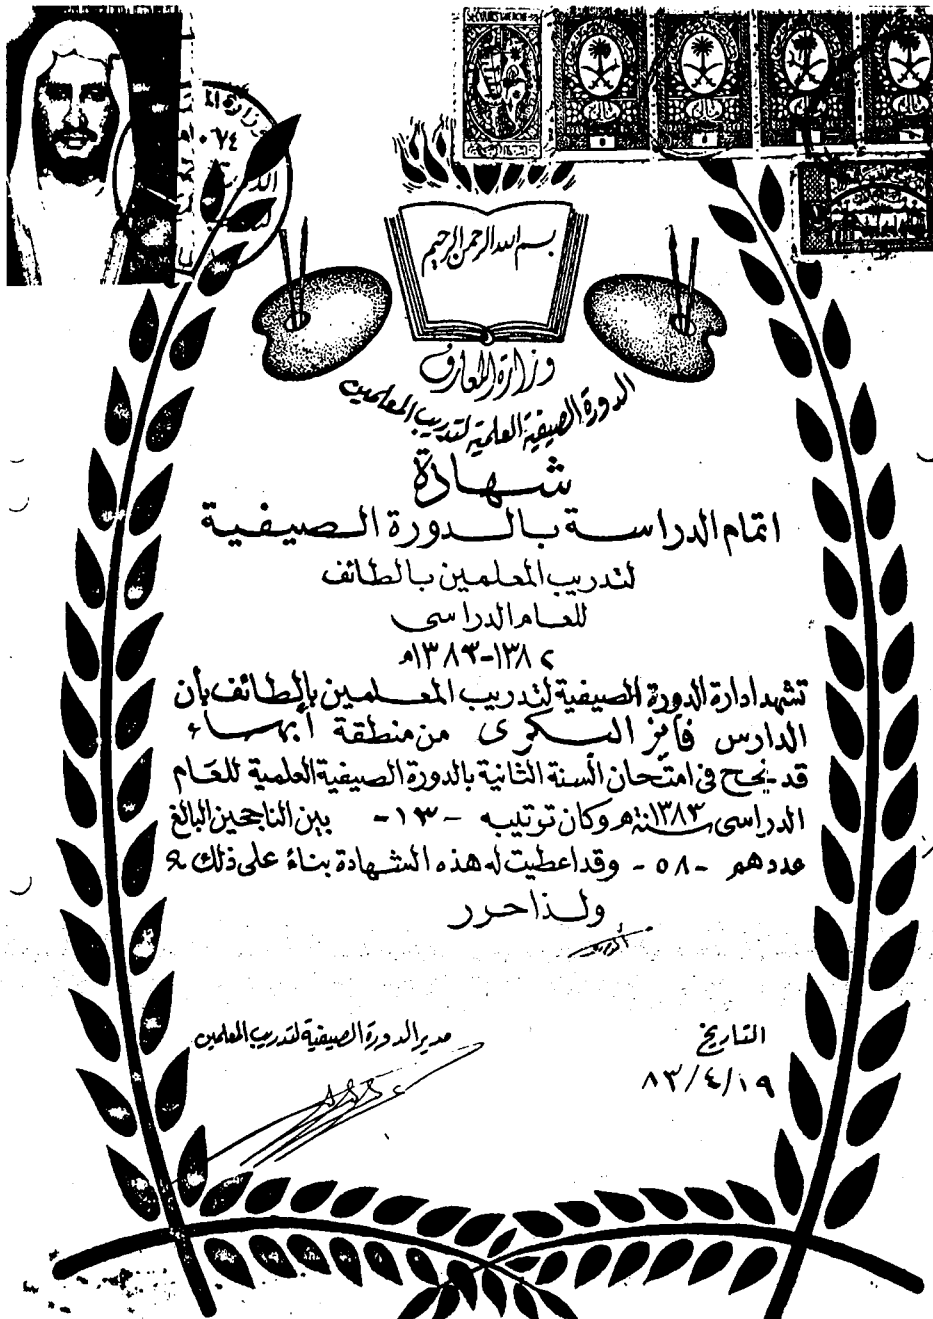 بسم الله الرحمن الرحيم
وزارة المعارف
الدورة الصيفية العلمية لتدريب المعلمين
شهادة
اتمام الدراسة بالدورة الصيفية
لتدريب المعلمين بالطائف
للعام الدراسى
١٣٨٢-١٣٨٣ه
تشهد ادارة الدورة الصيفية لتدريب المعلمين بالطائف بأن
الدارس فايز البكرى من منطقة أبهاء
قد نجح فى امتحان السنة الثانية بالدورة الصيفية العلمية للعام
الدراسى سنة ١٣٨٣ه وكان ترتيبه -١٣- بين الناجحين البالغ
عددهم -٥٨- وقد اعطيت له هذه الشهادة بناء على ذلك
ولذا حرر
التاريخ
٨٣/٤/١٩
مدير الدورة الصيفية لتدريب المعلمين